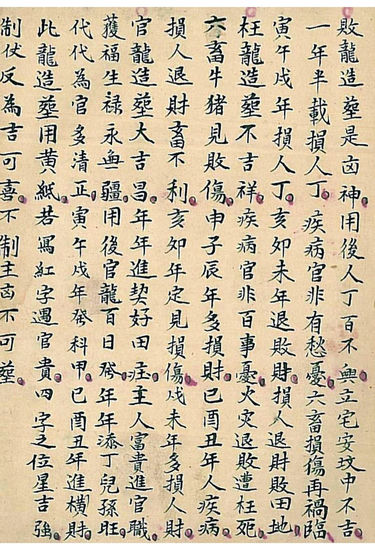 敗龍造塟是凶神用後人丁百不興立宅安坟中不吉
一年半載損人丁疾病官非有愁憂六畜損傷再禍臨
寅午戌年損人丁亥卯未年退敗財損人退財敗田地
枉龍造塟不吉祥疾病官非百事憂火灾退敗遭枉死
六畜牛猪見敗傷申子辰年多損財巳酉丑年人疾病
損人退財畜不利亥卯年定見損傷戌未年多損人財
官龍造塟大吉昌年年進契好田庄主人富貴進官職
獲福生禄永無疆用後官龍百日發年年添丁兒孫旺
代代為官多清正寅午戌年發科甲巳酉丑年進橫財
此龍造塟用黃紙若寫紅字遇官貴四字之位星吉強
制伏反為吉可喜不制主凶不可塟